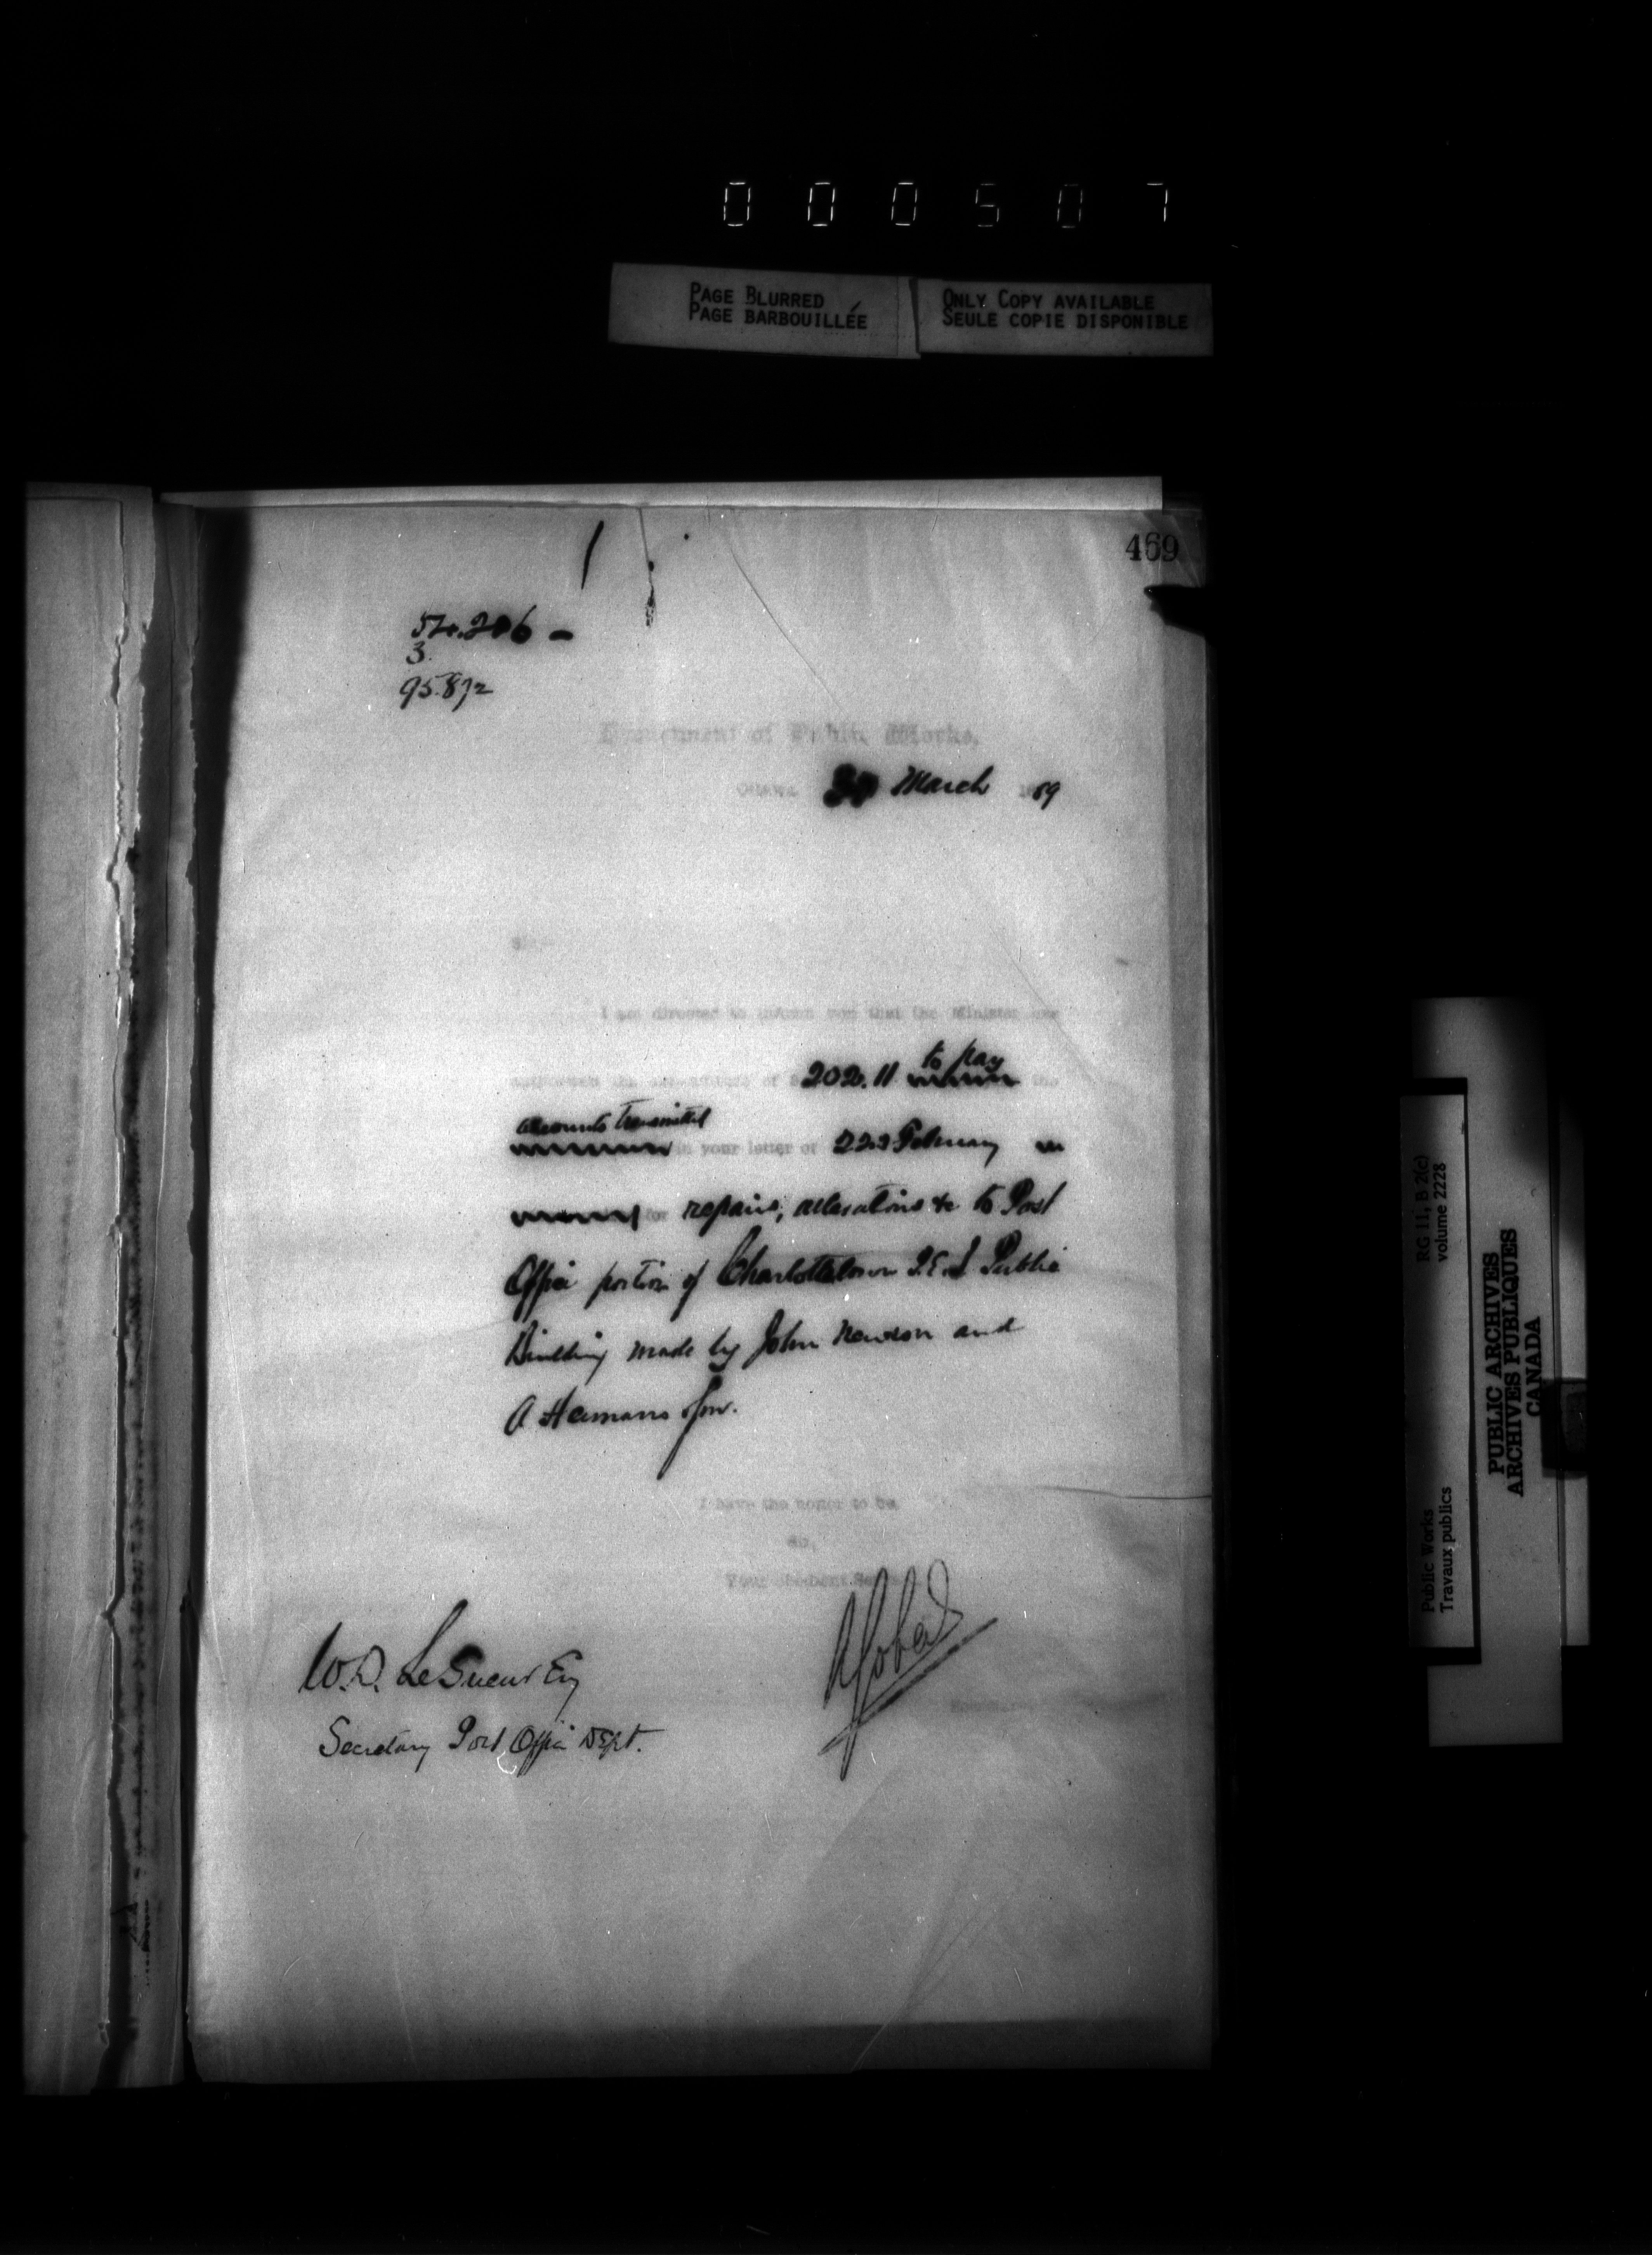 000507
PAGE BLURRED
PAGE BARBOUILLÉE
ONLY COPY AVAILABLE
SEULE COPIE DISPONIBLE
469
3
95.872
Department of Public Works,
Ottawa March 1889
Sir,-
I am directed to inform you that the Minister has
authorized the expenditure of $ 202.11 to pay the
accounts transmitted
in your letter of 22nd February
for repairs, alterations &c to Post
Office portion of Charlottetown P.E.I Public
Building made by John Newson and
A Hermans & Son.
I have the honor to be,
Sir,
Your obedient Servant
A Gobeil
W.D. LeSueur Esq
Secretary Post Office Dept.
Public Works
Travaux publics
RG 11, B 2(c)
volume 2228
PUBLIC ARCHIVES
ARCHIVES PUBLIQUES
CANADA